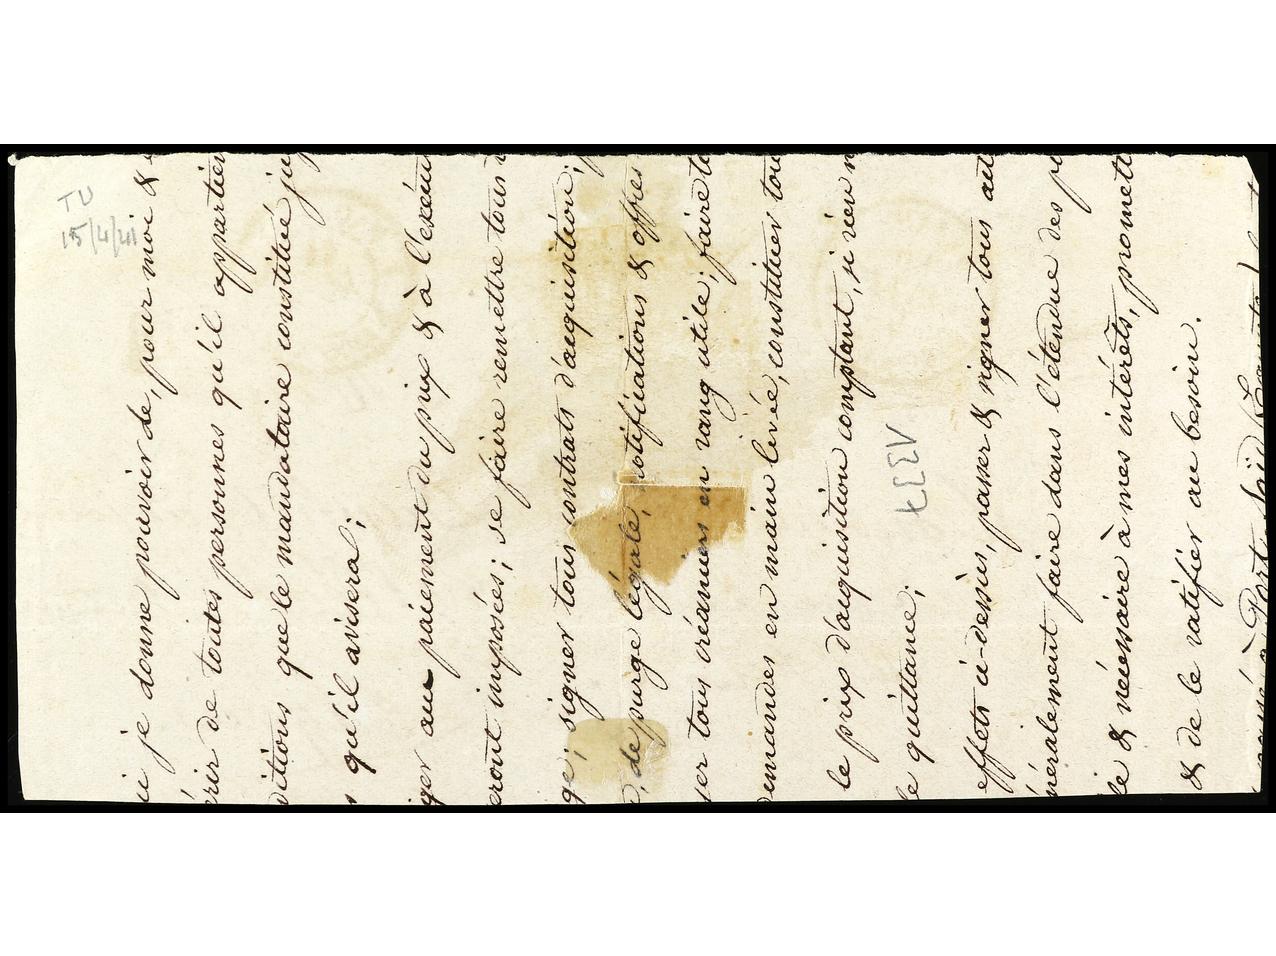 TU
15/4/41
je donne pouvoir de, pour moi &
érir de toutes personnes qu'il appartien
ditions que le mandataire constitué ju
qu'il avisera;
ger au paiement du prix & à l'exécu
eront imposées; se faire remettre tous
ge; signer tous contrats d'acquisition;
de purge légale, notifications & offres
er tous créanciers en rang utile; faire to
emandes en main livée, constituer tou
le prix d'acquisition comptant, je
e quittance;
effets ci-dessus, passer & signer tous act
néralement faire dans l'étendue des p
le & nécessaire à mes intérêts, promett
& de le ratifier au besoin.
à Port Saïd